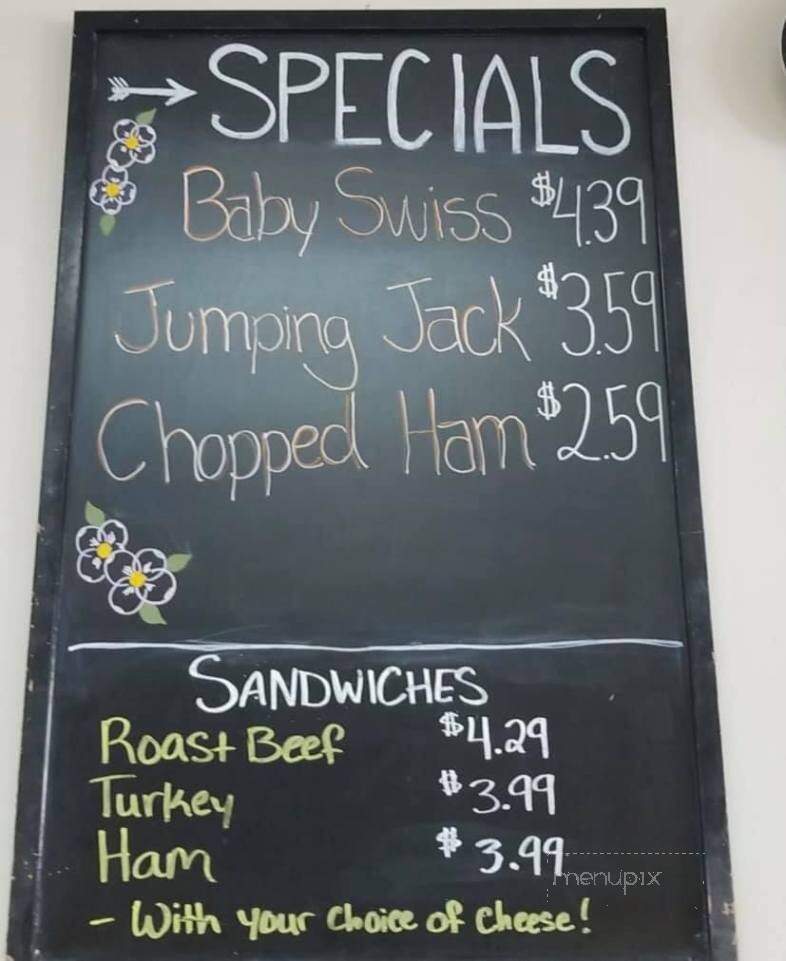 SPECIALS
Baby Swiss $4.39
Jumping Jack $3.59
Chopped Ham $2.59
SANDWICHES
Roast Beef $4.29
Turkey $3.99
Ham $3.99
menupix
- With your choice of cheese!